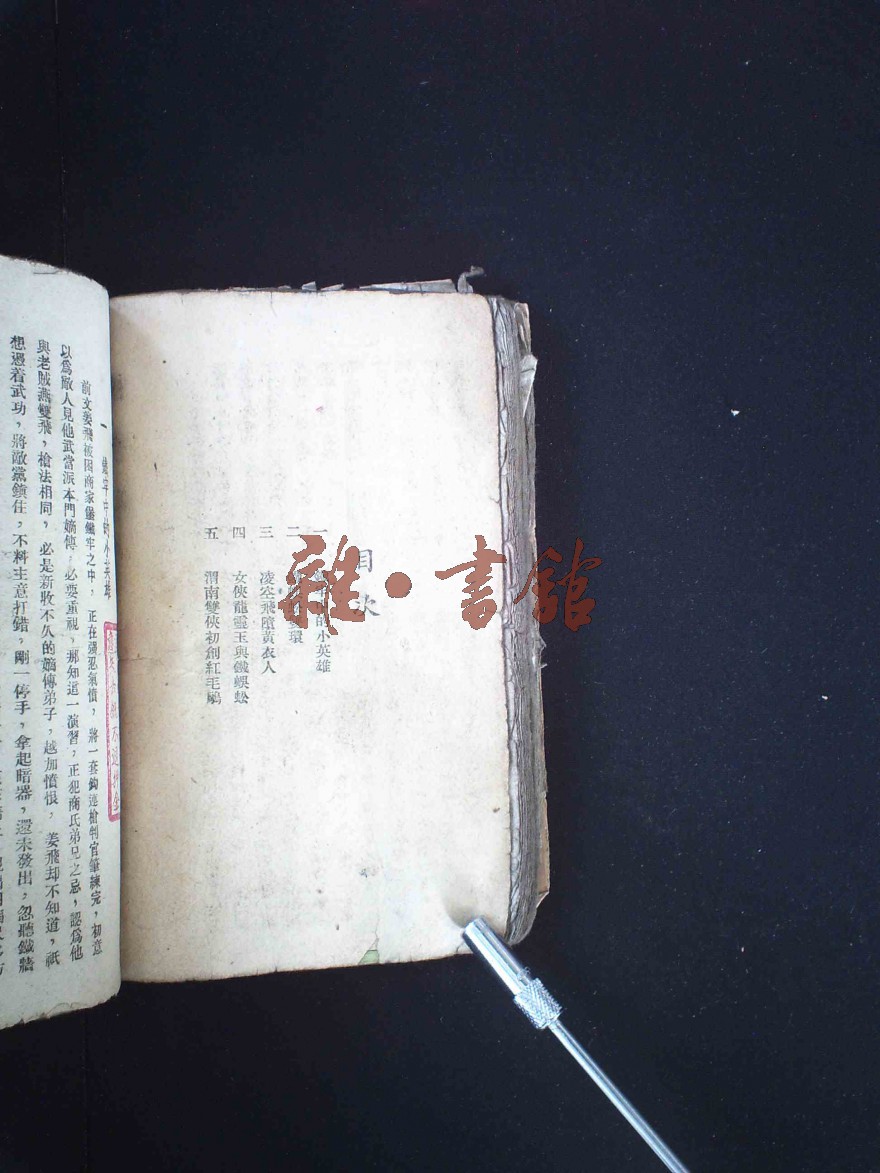 目次
一 的小英雄
二 環
三 凌空飛墮黃衣人
四 女俠龍靈玉與鐵蜈蚣
五 渭南雙俠初創紅毛鷳
雜·書館
一 小英雄
前文姜飛被困商家堡鐵牢之中，正在強忍氣憤，將一套鉤連槍判官筆練完，初意
以爲敵人見他武當派本門嫡傳，必要重視，那知道一演習，正犯商氏弟兄之忌，認爲他
與老賊燕雙飛，槍法相同，必是新收不久的嫡傳弟子，越加憤恨，姜飛却不知道，祇
想憑着武功，將敵黨鎭住，不料主意打錯，剛一停手，拿起暗器，還未發出，忽聽鐵牆